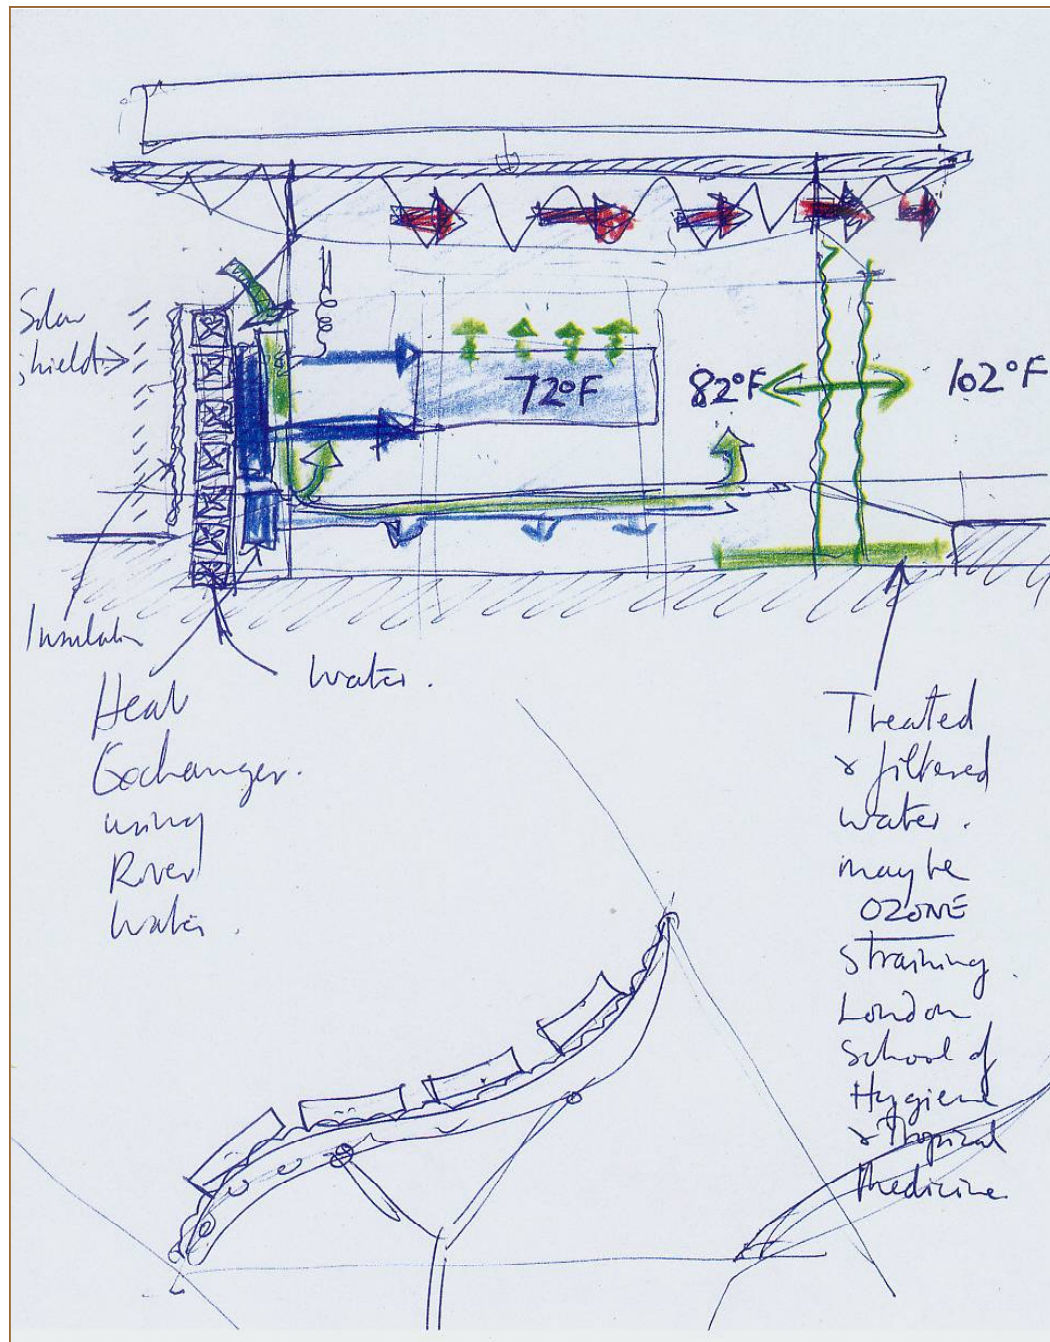 Solar
shields
72°F
82°F
102°F
Insulation
Heat
Exchanger.
using
River
Water.
Water.
Treated
& filtered
water.
maybe
OZONE
straining.
London
School of
Hygiene
& Tropical
Medicine